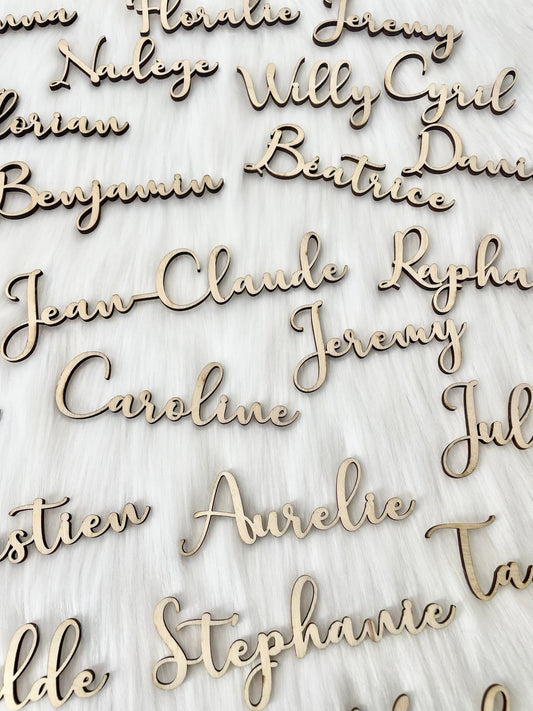 Floralie Jeremy
Nadège
Willy Cyril
lorian
Béatrice Dani
Benjamin
Jean-Claude Rapha
Jeremy
Caroline
Jul
stien Aurelie
Ta
Stephanie
lde